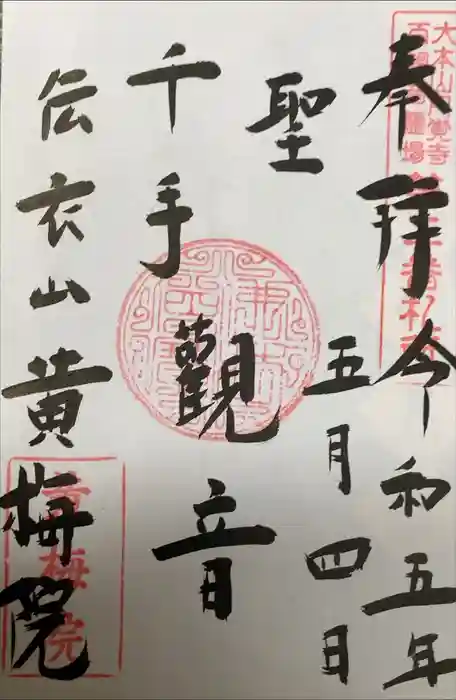 奉拝 令和五年
五月四日
聖
千手觀音
伝衣山 黄梅院
大本山円覚寺
百観音霊場
黄梅院